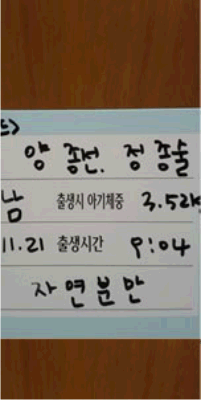 드>
양 종선. 정 종술
남 출생시 아기체중 3.52kg
11.21 출생시간 9:04
자연분만